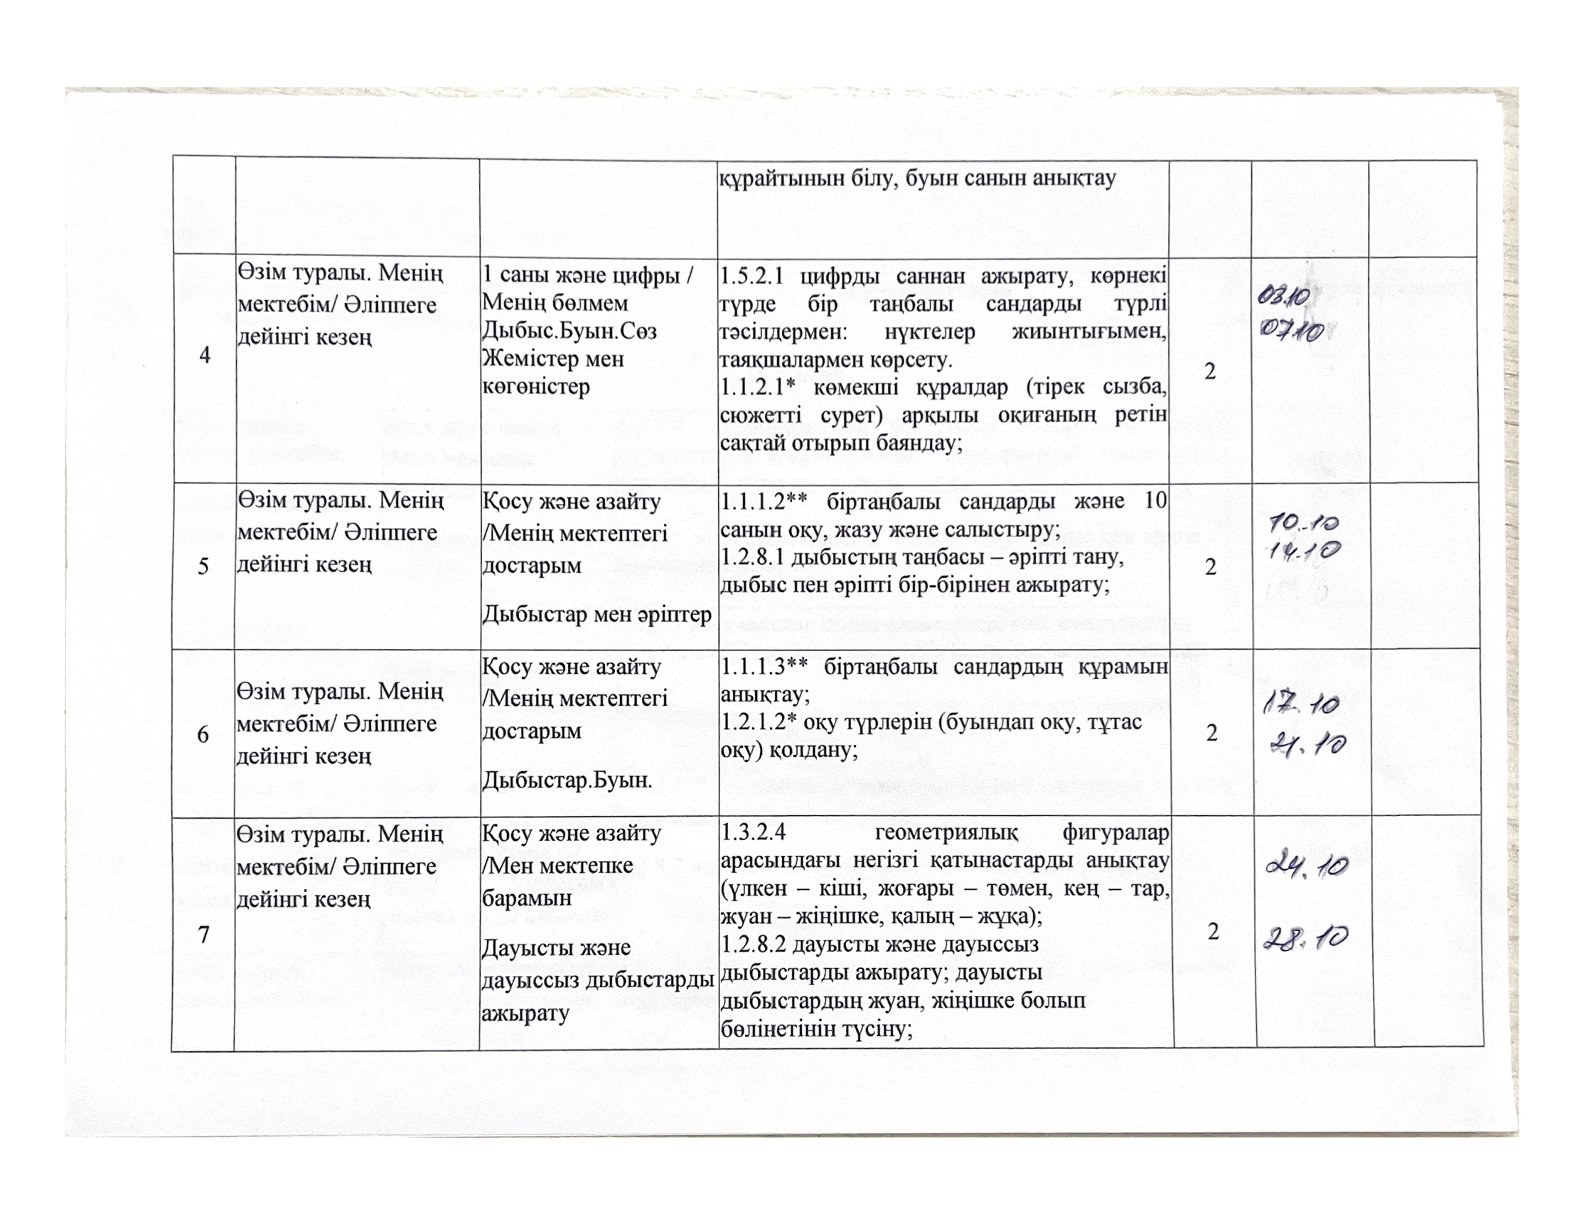 құрайтынын білу, буын санын анықтау
4
Өзім туралы. Менің
мектебім/ Әліппеге
дейінгі кезең
1 саны және цифры /
Менің бөлмем
Дыбыс.Буын.Сөз
Жемістер мен
көгөністер
1.5.2.1 цифрды саннан ажырату, көрнекі
түрде бір таңбалы сандарды түрлі
тәсілдермен: нүктелер жиынтығымен,
таяқшалармен көрсету.
1.1.2.1* көмекші құралдар (тірек сызба,
сюжетті сурет) арқылы оқиғаның ретін
сақтай отырып баяндау;
2
03.10
07.10
5
Өзім туралы. Менің
мектебім/ Әліппеге
дейінгі кезең
Қосу және азайту
/Менің мектептегі
достарым
Дыбыстар мен әріптер
1.1.1.2** біртаңбалы сандарды және 10
санын оқу, жазу және салыстыру;
1.2.8.1 дыбыстың таңбасы – әріпті тану,
дыбыс пен әріпті бір-бірінен ажырату;
2
10.10
14.10
6
Өзім туралы. Менің
мектебім/ Әліппеге
дейінгі кезең
Қосу және азайту
/Менің мектептегі
достарым
Дыбыстар.Буын.
1.1.1.3** біртаңбалы сандардың құрамын
анықтау;
1.2.1.2* оқу түрлерін (буындап оқу, тұтас
оқу) қолдану;
2
17.10
21.10
7
Өзім туралы. Менің
мектебім/ Әліппеге
дейінгі кезең
Қосу және азайту
/Мен мектепке
барамын
Дауысты және
дауыссыз дыбыстарды
ажырату
1.3.2.4 геометриялық фигуралар
арасындағы негізгі қатынастарды анықтау
(үлкен – кіші, жоғары – төмен, кең – тар,
жуан – жіңішке, қалың – жұқа);
1.2.8.2 дауысты және дауыссыз
дыбыстарды ажырату; дауысты
дыбыстардың жуан, жіңішке болып
бөлінетінін түсіну;
2
24.10
28.10